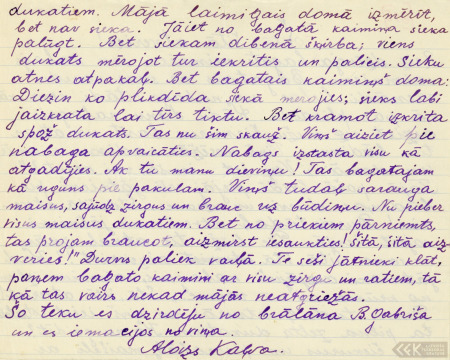 dukatiem. Mājā laimīgais domā izmērīt,
bet nav sieka. Jāiet no bagātā kaimiņa sieka
palūgt. Bet siekam dibenā šķirba; viens
dukats mērojot tur iekritis un palicis. Sieku
atnes atpakaļ. Bet bagatais kaimiņš doma:
Diezin ko plikdīda siekā mērojies; sieks labi
jaizkrata lai tīrs tiktu. Bet kramot izkrita
spož dukats. Tas nu šim skauž. Viņš aiziet pie
nabaga apvaicāties. Nabags izstasta visu kā
atgadījies. Ak tu manu dieviņu! Tas bagatajam
kā uguns pie pakulam. Viņš tudaļ sarauga
maisus, sajūdz zirgus un brauc uz būdiņu. Nu pieber
visus maisus dukatiem. Bet no priekiem pārņemts,
tas projam braucot, aizmirst iesaunkties! Šitā, šitā aiz-
veries!" Durvis paliek vaļā. Te seši jātnieki klāt,
paņem bagāto kaimiņi ar visu zirgu un ratiem, tā
kā tas vairs nekad mājās neatgriežas.
Šo teku es dzirdēju no brālāna B. Gabriša
un es iemacijos no viņa.
Aloizs Kalva.